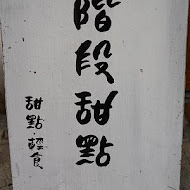 階段甜點
甜點.輕食